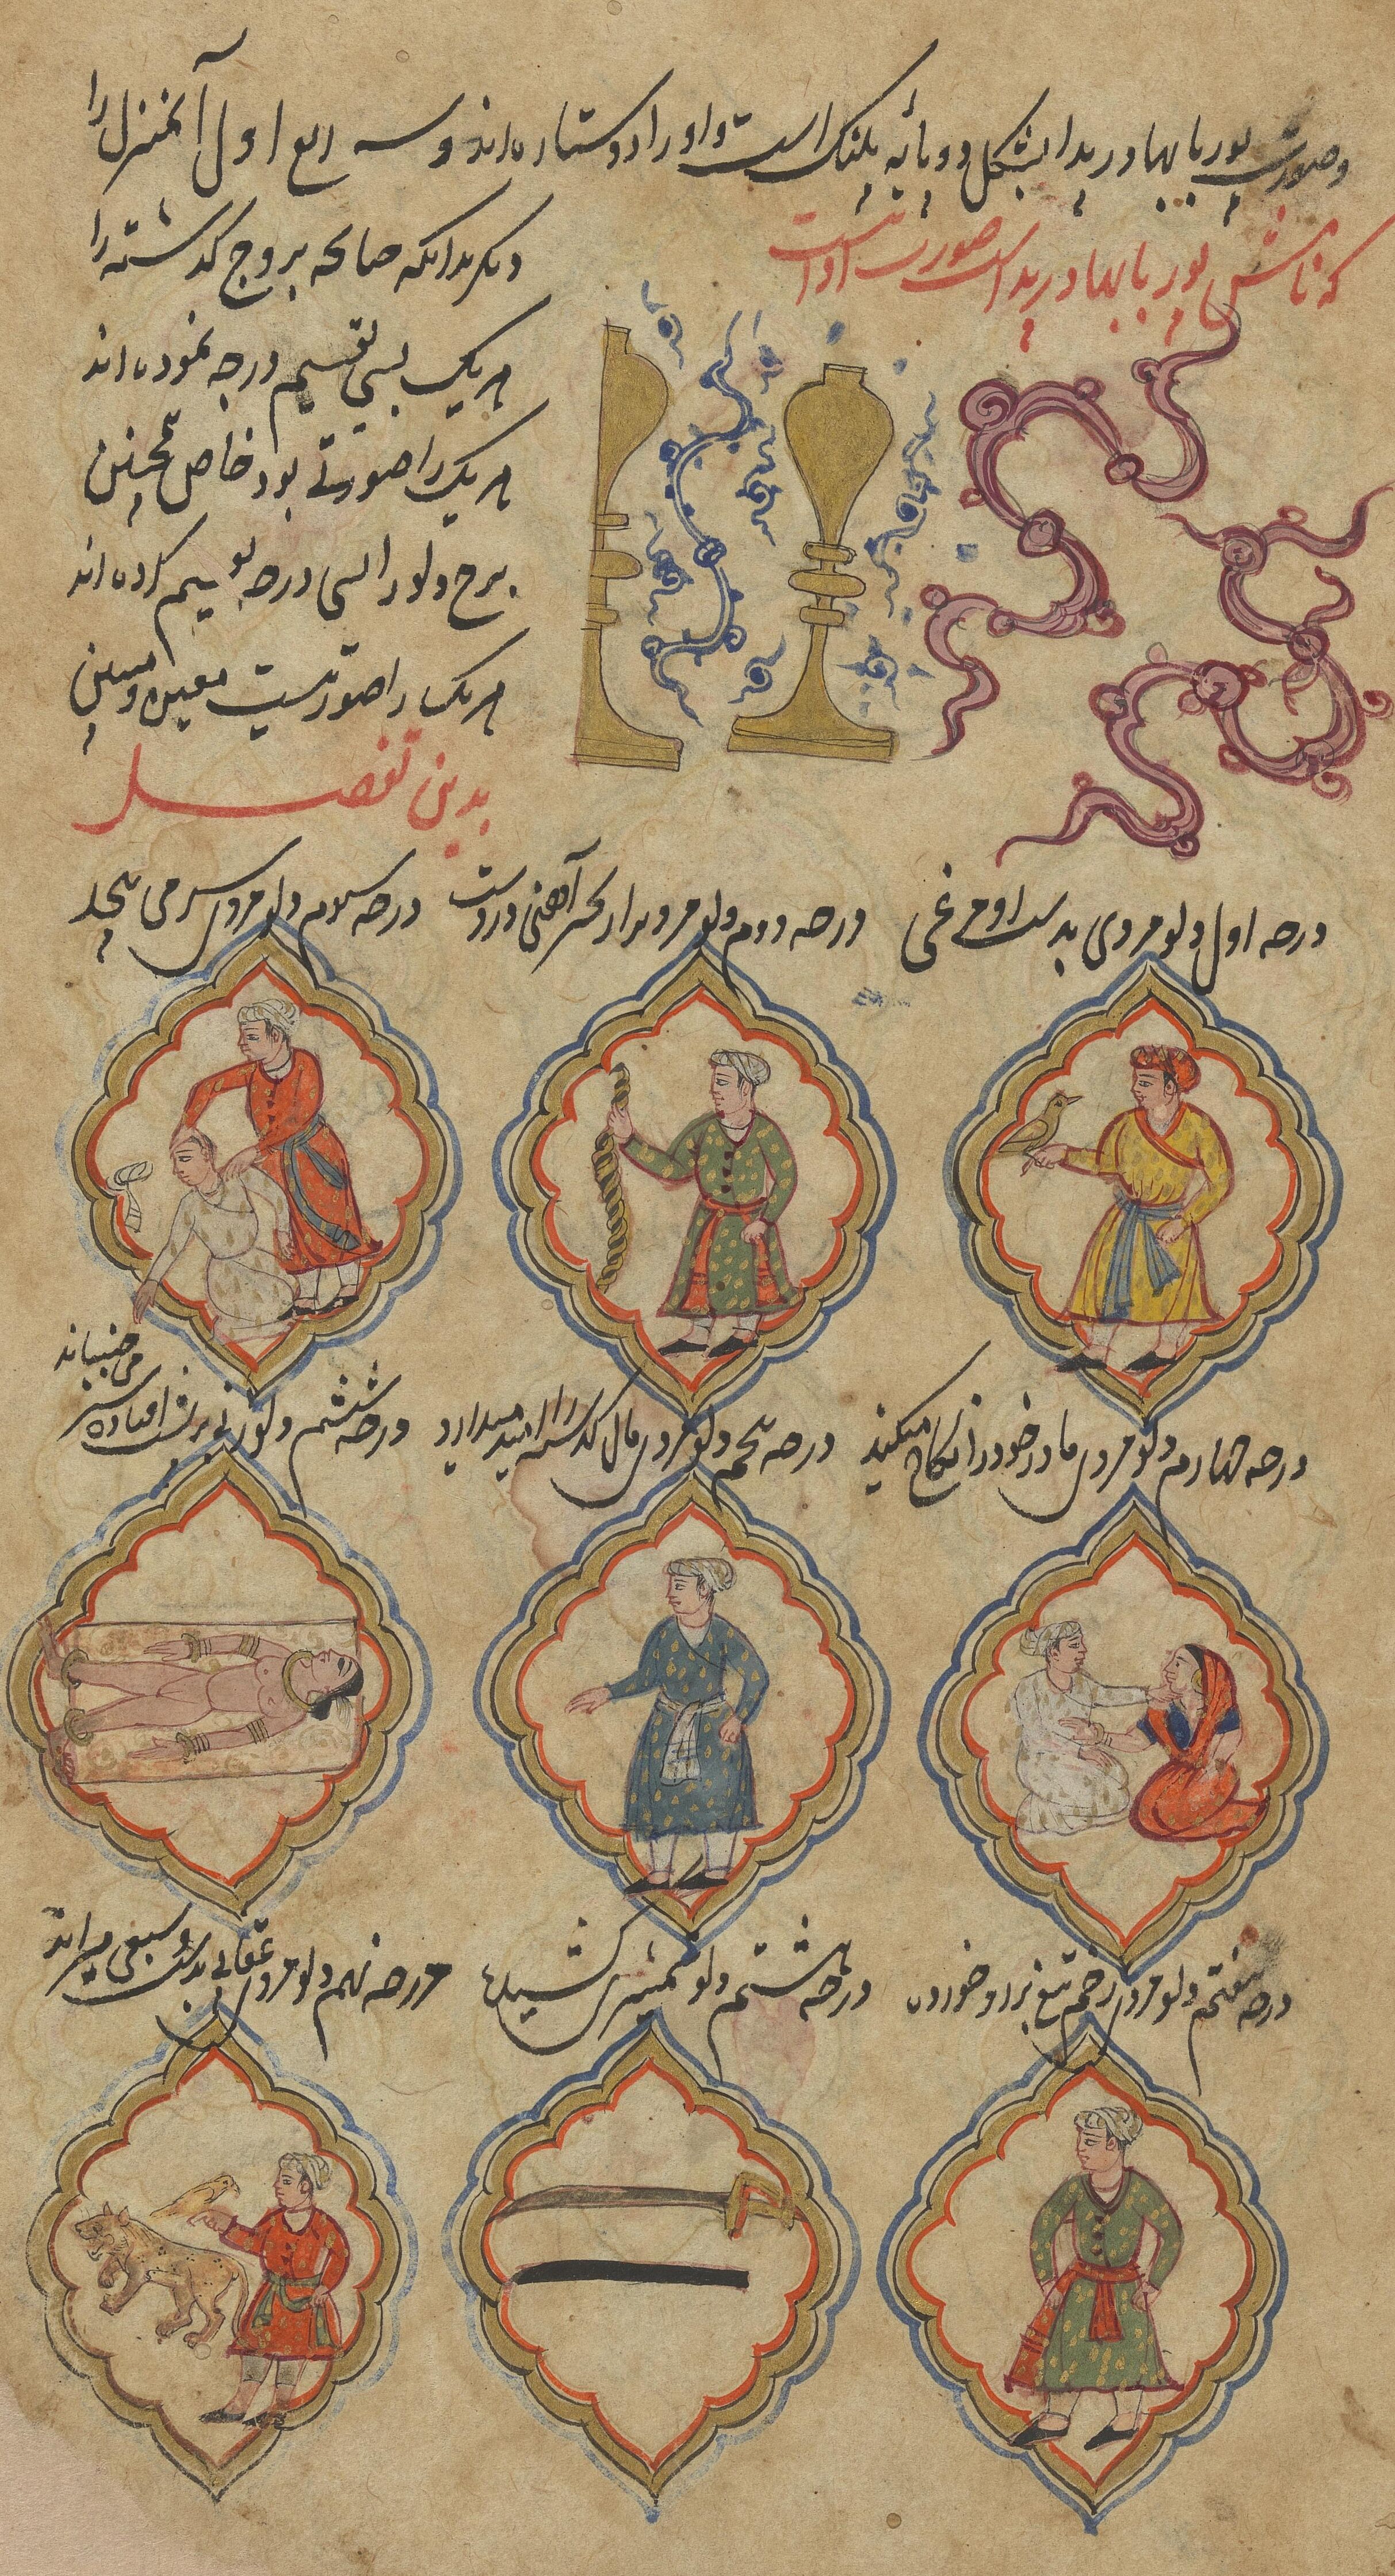 وصورت پوربابهادرپدا بشکل دو پایه پلنک است و او را دو ستاره اند و سه ربع اول آنمنزل را
که نامش پوربابهادرپد است صورت او اینست
دیکر بدانکه صاحبه بروج کذشته را
هر یک بسی تقسیم درجه نموده اند
هر یک را صورتی بود خاص همچنین
برج دلو را بسی درجه تقسیم کرده اند
هر یک را صورتیست معین و مبین
بدین تفصیل
درجه اول دلو مردی بدست او مرغی
درجه دوم دلو مردیرا زنجیر آهنی در دست
درجه سوم دلو مردی سر می پیچد
درجه چهارم دلو مردی مادر خود را نکاح میکند
درجه پنجم دلو مردی مال کذشته را امید میدارد
درجه ششم دلو زنی برپشت افتاده سر
می جنباند
درجه هفتم دلو مردی زخم تیغ برو خورده
درجه هشتم دلو شمشیری کشیده
درجه نهم دلو مردی عقابی بدست و سبعی میراند